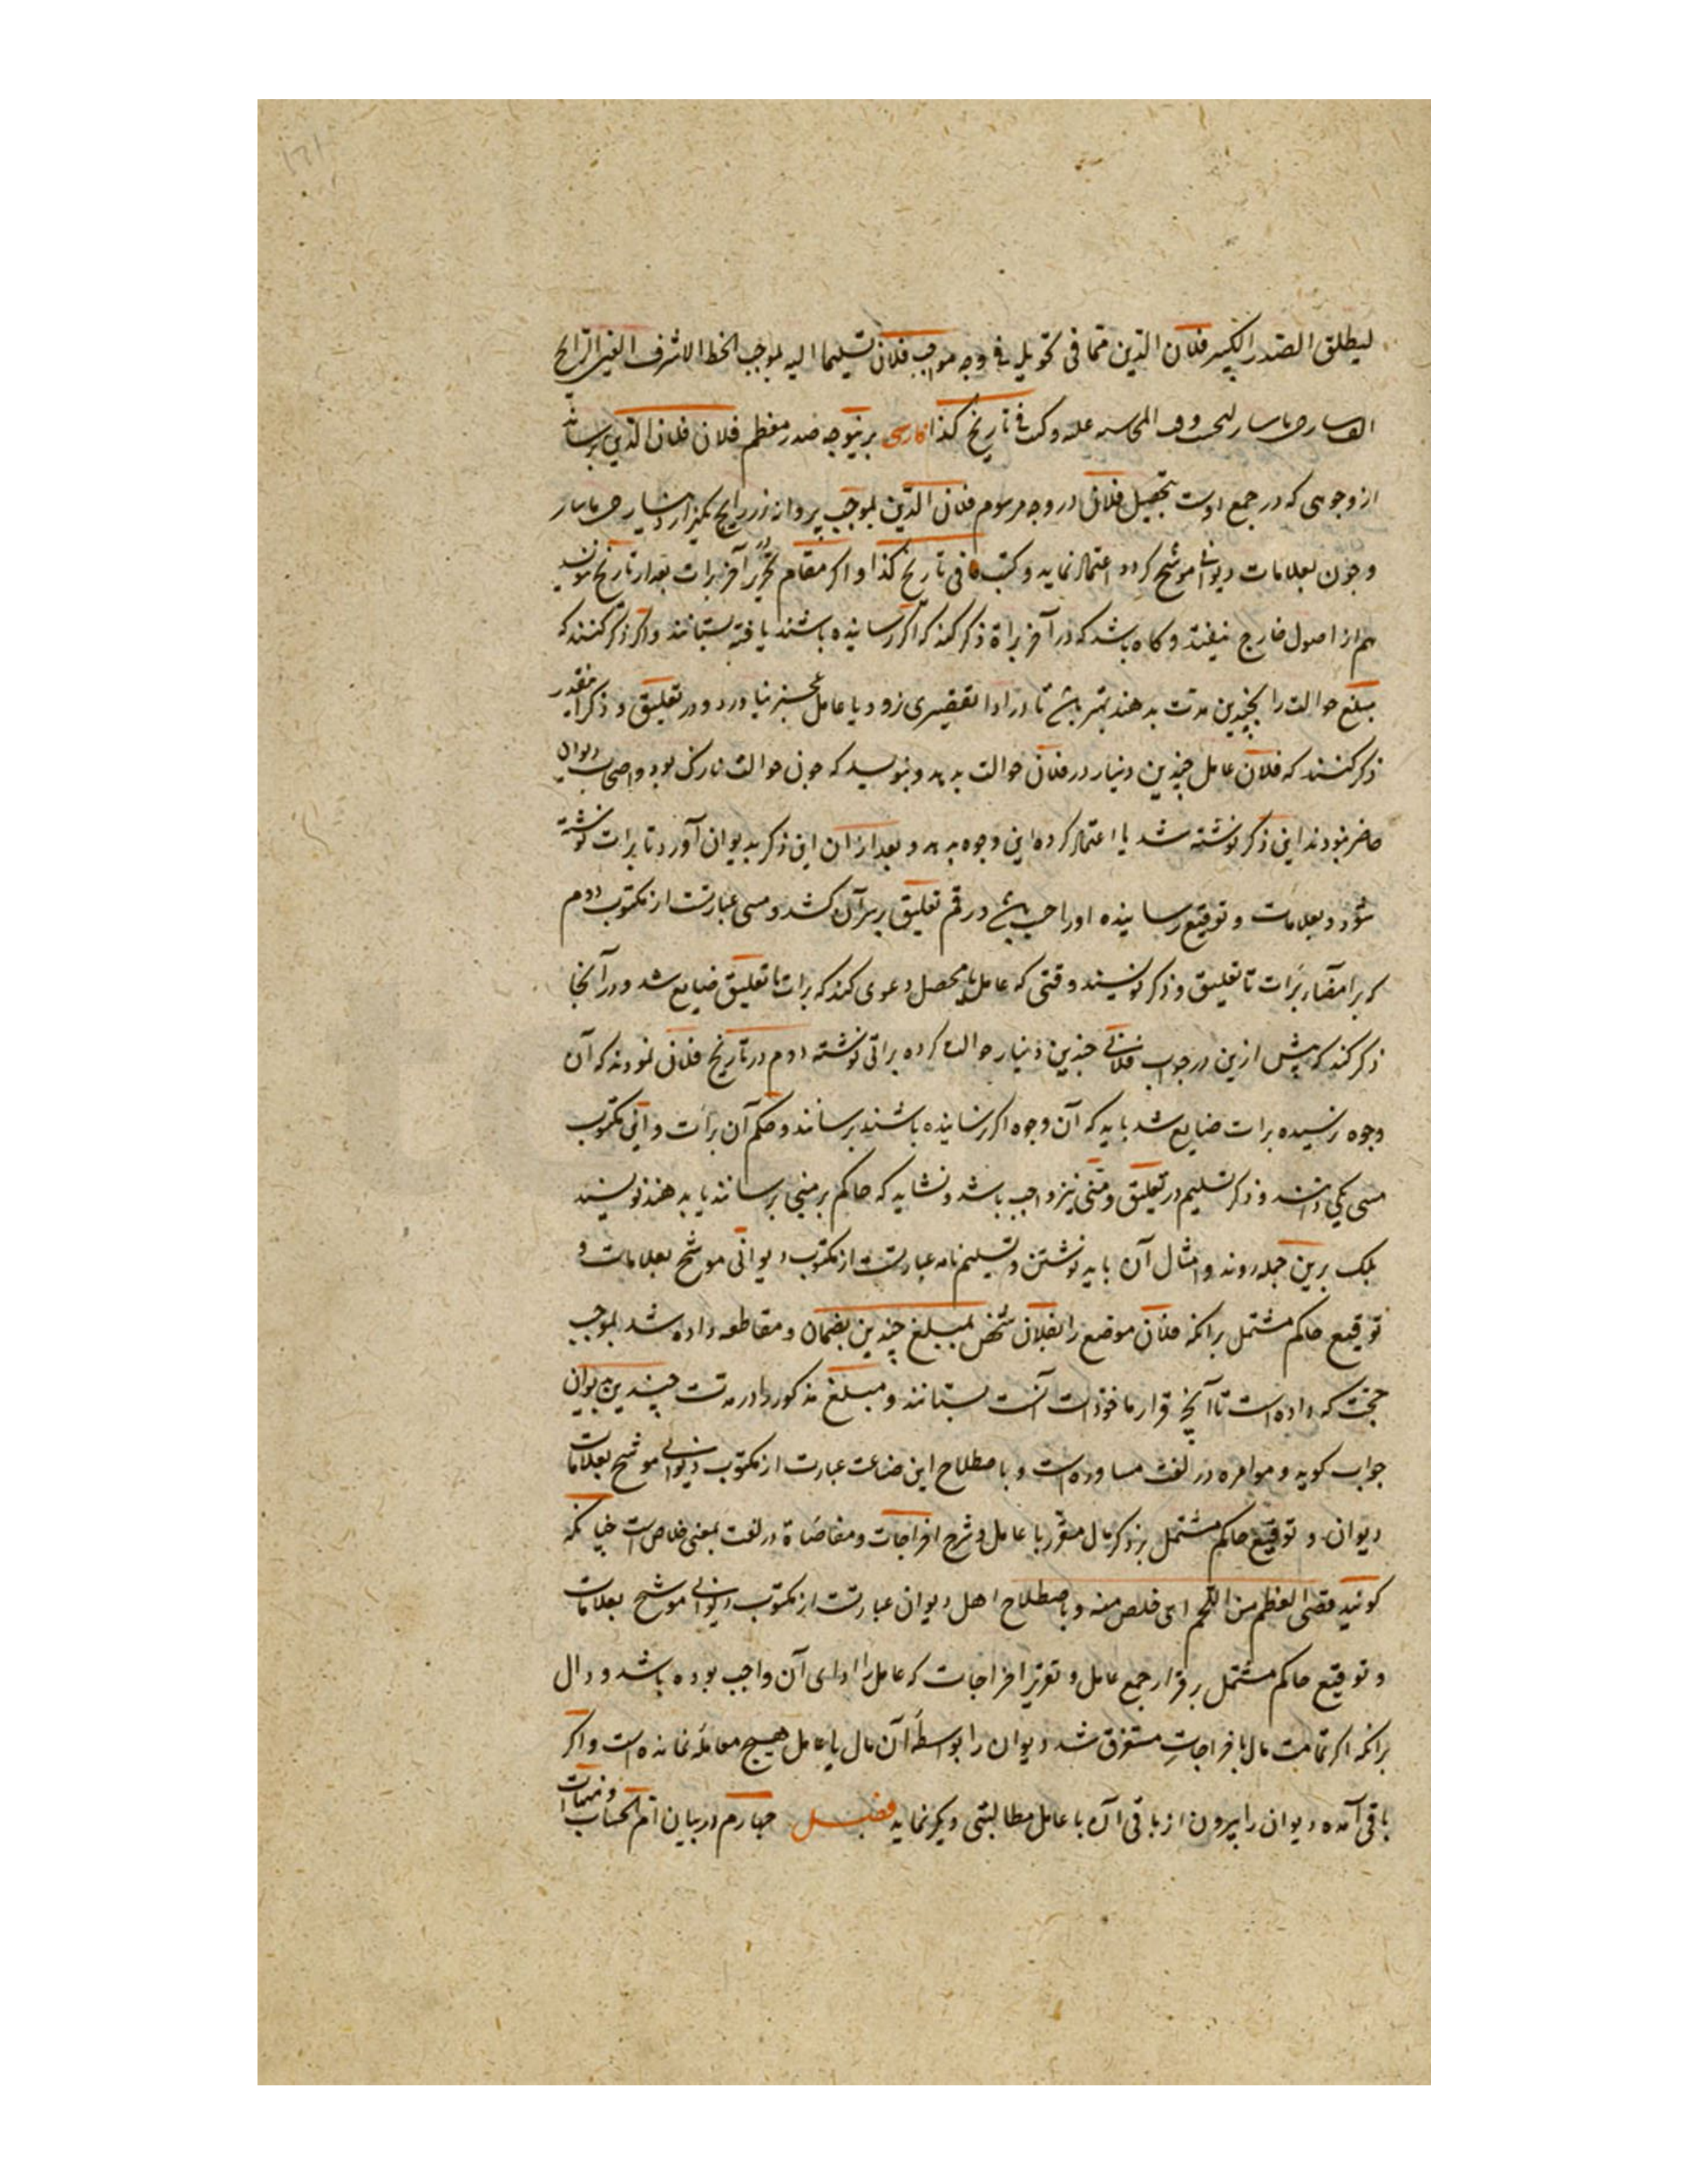 لیطلق الصدر الکبیر فلان الدین مما فی تحویله فی وجه مواجب فلان تسلیما الیه بموجب الخط الاشرف العین الرایح
فی تاریخ کذا فارسی برینوجه صدر معظم فلان فلان الدین برساند
از وجوهی که در جمع اوست بتحصیل فلان در وجه مرسوم فلان الدین بموجب پروانه زر رایج یکهزار دینار
و چون بعلامات دیوانی موشح کردد اعتماد نماید و کتب فی تاریخ کذا و اکر مقام تحریر در آخر برات بعد از تاریخ نویسد
هم از اصول خارج نیفتد و کاه باشد که در آخر براة ذکر کند که اکر رسانیده باشند یافته بستانند و اکر ذکر کنند که
مبلغ حوالت را بچندین مدت بدهند بهتر باشد تا در ادا تقصیری نرود یا عامل عجز نیاورد و در تعلیق و ذکر اینقدر
ذکر کنند که فلان عامل چندین دینار در فلان حوالت بدهد و بنویسد که چون حوالت نازک بود و اصحاب دیوان
حاضر نبودند این ذکر نوشته شد یا اعتماد کرده این وجوه بدهد و بعد از آن این ذکر بدیوان آورد تا برات نوشته
شود و بعلامات و توقیع رسانیده او را حساب باشد و رقم تعلیق بر سر آن کشد و مسی عبارتست از مکتوب دوم
که بر امضاء برات تا تعلیق و ذکر نویسند وقتی که عامل یا محصل دعوی کند که برات یا تعلیق ضایع شد و در آنجا
ذکر کند که پیش ازین در جواب فلانی چندین دینار حوالت کرده براتی نوشته دوم در تاریخ فلان نمودند که آن
وجوه نرسیده برات ضایع شد باید که آن وجوه اکر رسانیده باشند برسانند و حکم آن برات و این مکتوب
مسی یکی دانند و ذکر تسلیم در تعلیق و مثنی نیز واجب باشد و نشاید که حاکم بر مبنی برسانند یا بدهند نویسند
بلک برین جمله روند و امثال آن باید نوشتن و تسلیم نامه عبارتست از مکتوب دیوانی موشح بعلامات و
توقیع حاکم مشتمل برانکه فلان موضع را بفلان شخص بمبلغ چندین بضمان و مقاطعه داده شد بموجب
حجت که داده است تا آنچ قرار ماخوذات آنست بستانند و مبلغ مذکور را در مدت چندین بدیوان
جواب کوید و موامره در لغت مساوره است و باصطلاح این صناعت عبارت از مکتوب دیوانی موشح بعلامات
دیوان و توقیع حاکم مشتمل بر ذکر مال مقرر با عامل و شرح اخراجات و مفاصاة در لغت بمعنی خلاص است چنانکه
کویند قضی العظم من اللحم ای خلص منه و باصطلاح اهل دیوان عبارتست از مکتوب دیوانی موشح بعلامات
و توقیع حاکم مشتمل بر قرار جمع عامل و تعزیز اخراجات که عامل را ادای آن واجب بوده باشد و دال
برانکه اکر تمامت مال باخراجات مستغرق شد دیوان را بواسطه آن مال با عامل هیچ معامله نمانده است و اکر
باقی آمده دیوان را بیرون از باقی آن با عامل مطالبتی دیکر نماید فصل چهارم در بیان ام الحساب و متممات